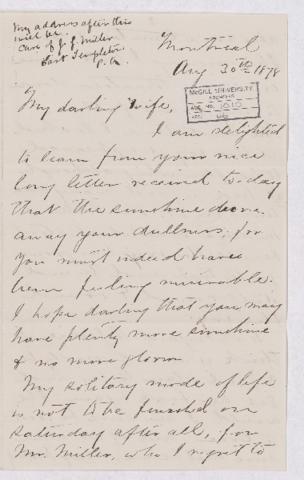 My address after this
will be.
Care of J. J. Miller
East Templeton
P.Q.
Montreal
Aug 30th 1878
McGILL UNIVERSITY
ARCHIVES
ACC. NO. 1010
REF.
My darling wife,
I am delighted
to learn from your nice
long letter received to-day
that the sunshine drove
away your dullness, for
you must indeed have
been feeling miserable.
I hope darling that you may
have plenty more sunshine
& no more gloom
My solitary mode of life
is not to be finished on
Saturday after all, for
Mr. Miller, who I regret to